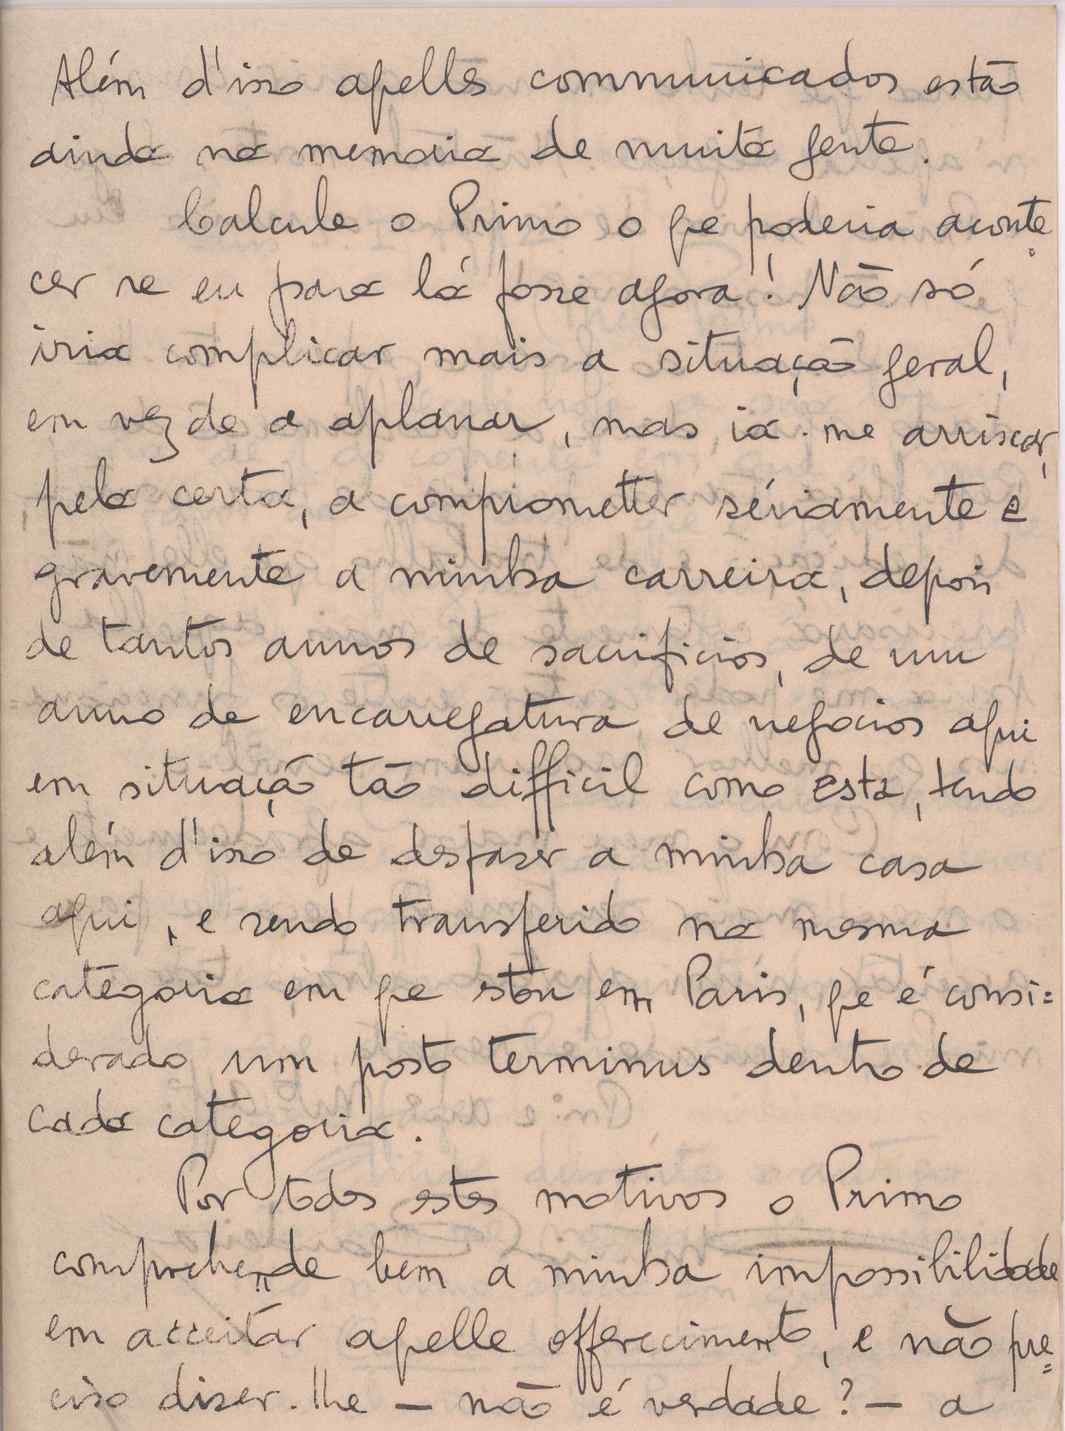 Além d'isso aquelles communicados estão
ainda na memoria de muita gente.
Calcule o Primo o que poderia aconte=
cer se eu para lá fosse agora! Não só
iria complicar mais a situação geral,
em vez de a aplanar, mas ia-me arriscar,
pela certa, a comprometter sériamente e
gravemente a minha carreira, depois
de tantos annos de sacrificios, de um
anno de encarregatura de negocios aqui
em situação tão difficil como esta, tendo
além d'isso de desfazer a minha casa
aqui, e sendo transferido na mesma
categoria em que estou em Paris, que é consi=
derado um posto terminus dentro de
cada categoria.
Por todos estes motivos o Primo
comprehende bem a minha impossibilidade
em acceitar aquelle offerecimento, e não pre=
ciso dizer-lhe — não é verdade? — a